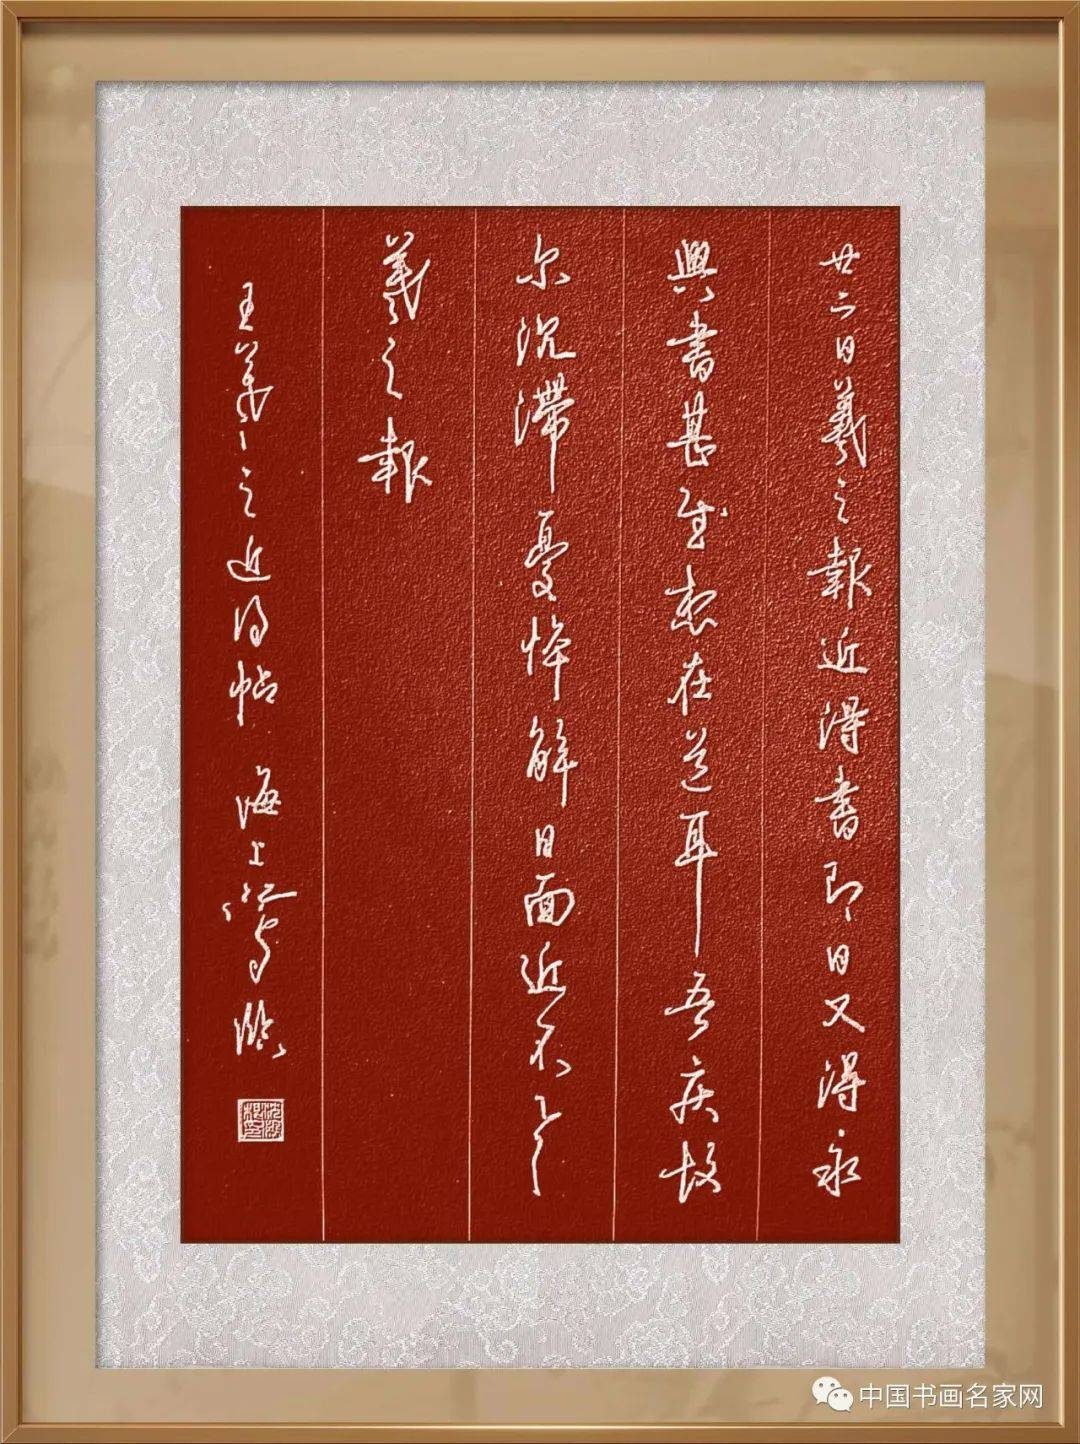 廿六日羲之報近得書即日又得永
興書甚慰想在道耳吾疾故
尔沉滯憂悴解日面近不具
羲之報
王羲之近得帖 海上鶯臨
中国书画名家网